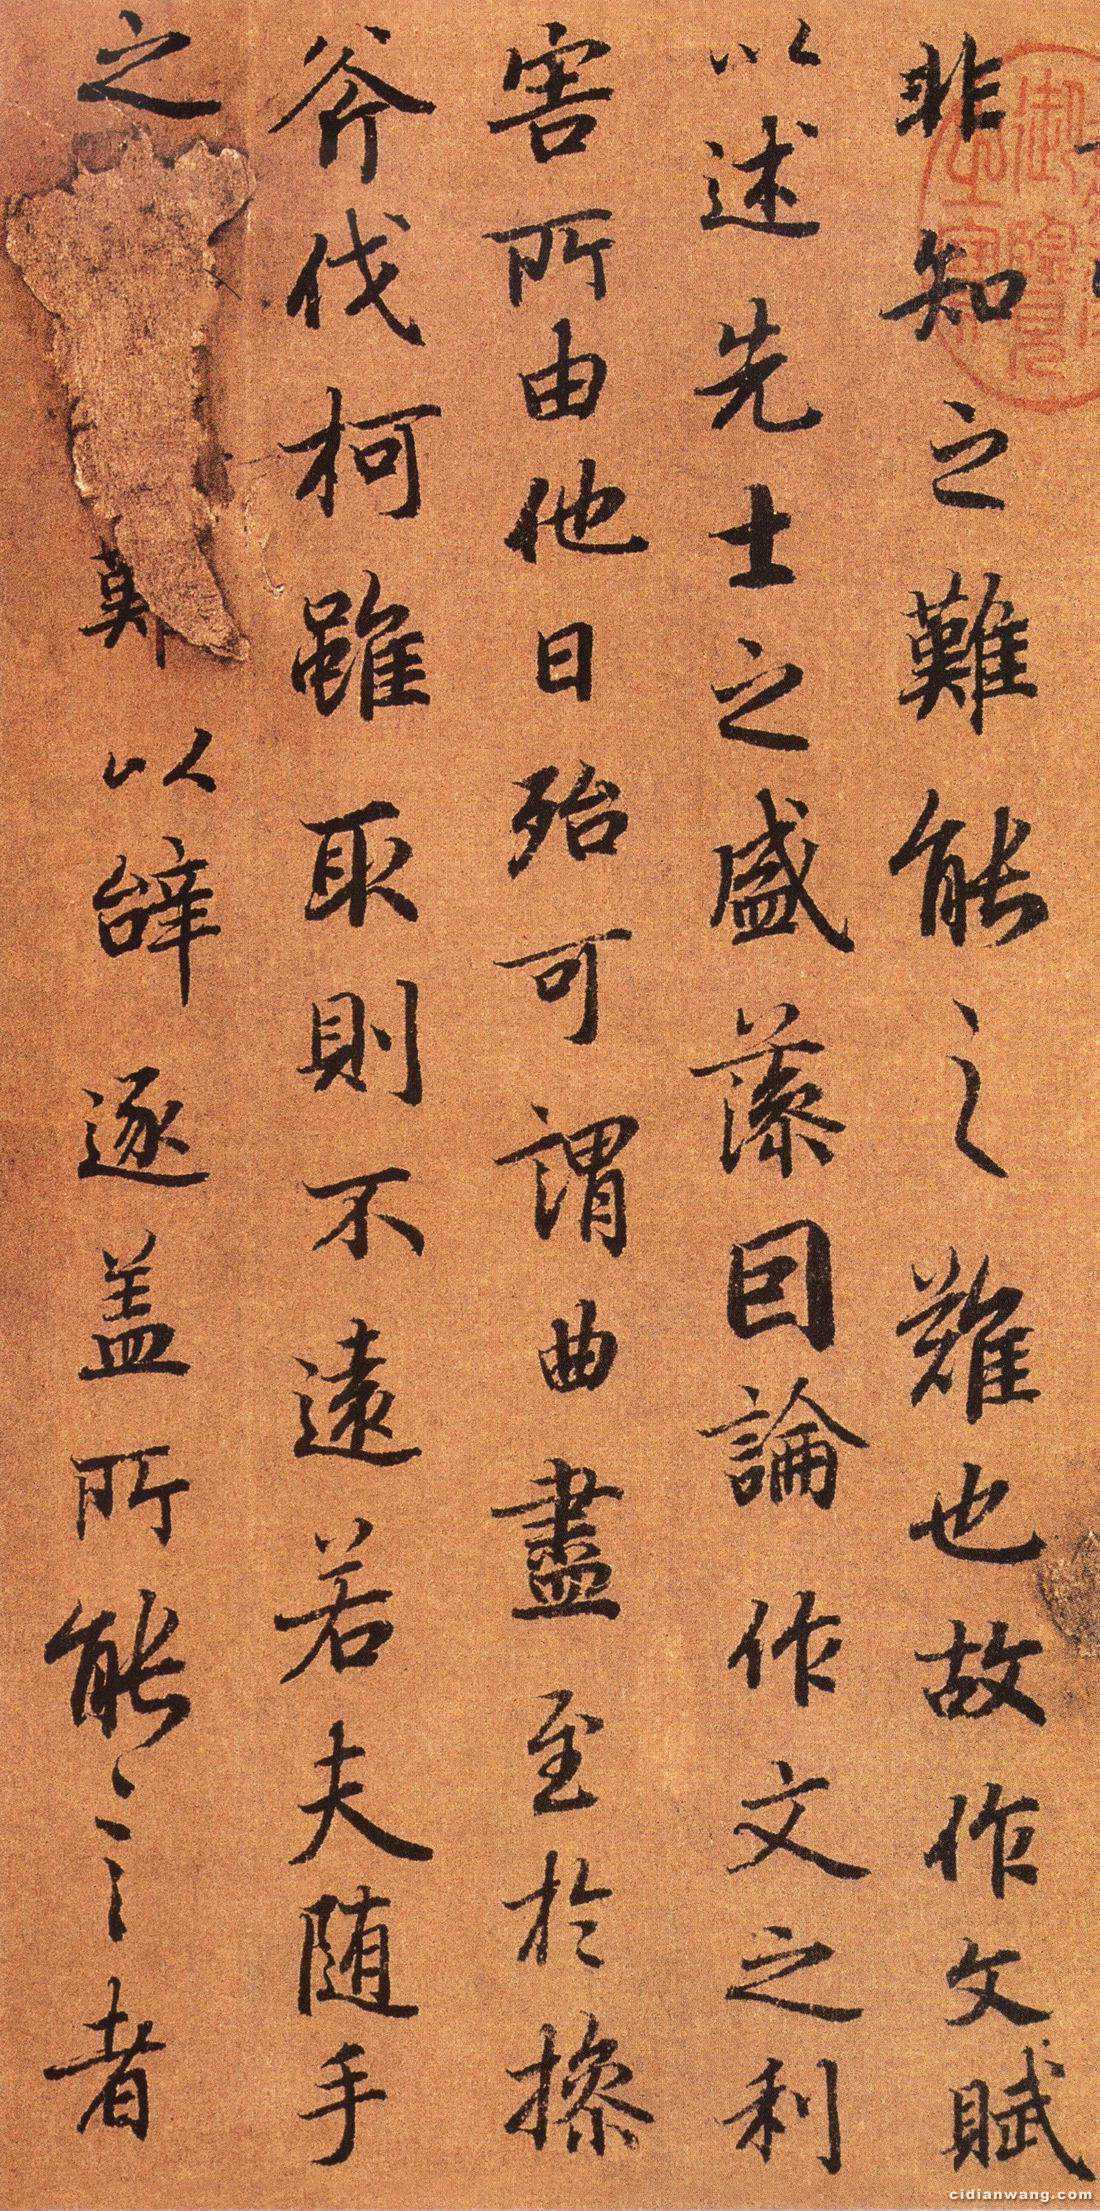 非知之難能之難也故作文賦
以述先士之盛藻因論作文之利
害所由他日殆可謂曲盡至於操
斧伐柯雖取則不遠若夫随手
之難以辝逐盖所能言者
cidianwang.com